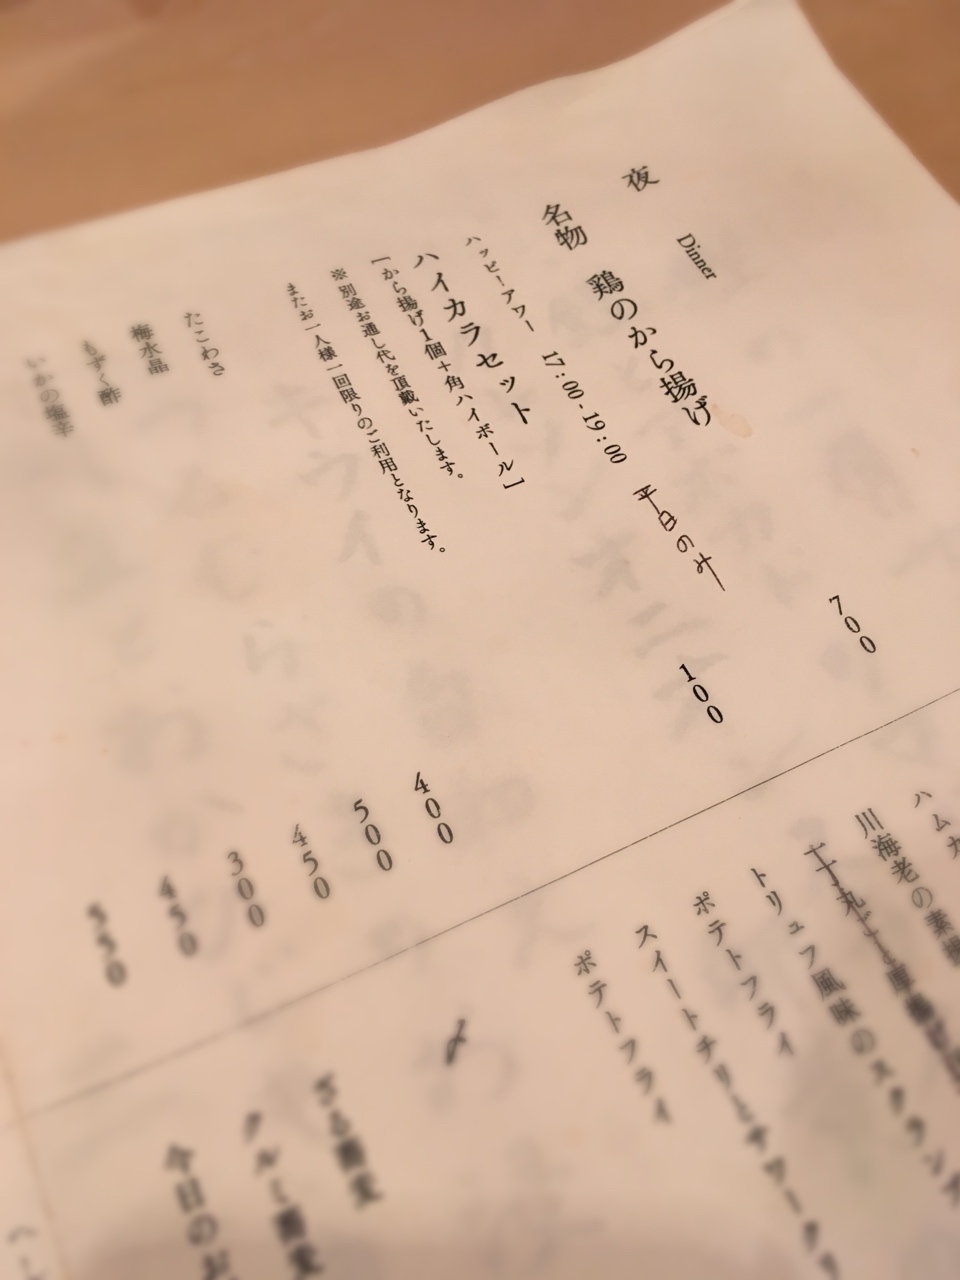 Dinner
夜
名物 鶏のから揚げ 700
ハッピーアワー 17:00-19:00 平日のみ
ハイカラセット 100
[から揚げ1個+角ハイボール]
※別途お通し代を頂戴いたします。
またお一人様一回限りのご利用となります。
たこわさ 400
梅水晶 500
もずく酢 450
いかの塩辛 300
450
550
ハムカ
川海老の素揚
トリュフ風味のスクランブ
ポテトフライ
スイートチリとサワークリ
ポテトフライ
〆
ざる蕎麦
クルミ蕎麦
今日のお